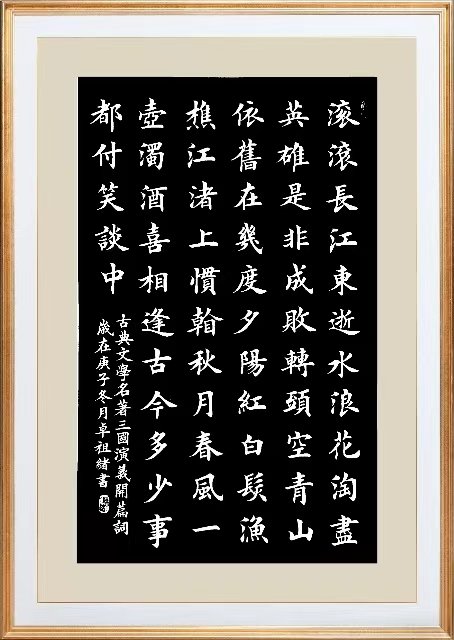 滚滚長江東逝水浪花淘盡
英雄是非成敗轉頭空青山
依舊在幾度夕陽紅白髮漁
樵江渚上慣翰秋月春風一
壺濁酒喜相逢古今多少事
都付笑談中
古典文學名著三國演義開篇詞
歲在庚子冬月卓祖緒書